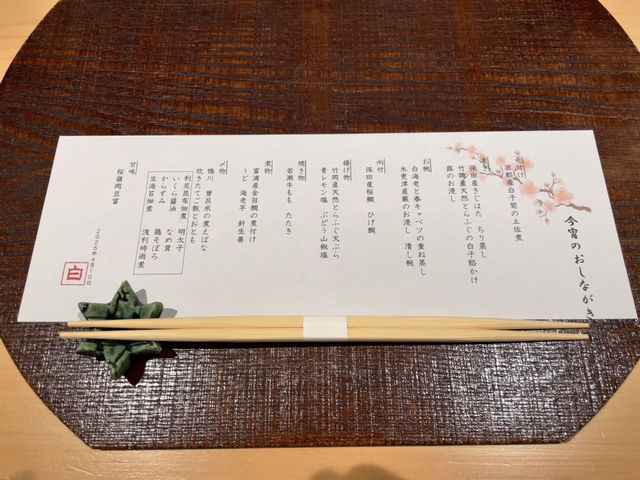 今宵のおしながき
先付け
京都産白子筍の土佐煮
保田産きじはた ちり蒸し
竹岡産天然とらふぐの白子餡かけ
蕗のお浸し
お椀
白海老と春キャベツの重ね蒸し
木更津産蕨のお浸し 潰し椀
向付
保田産桜鯛 ひげ鯛
揚げ物
竹岡産天然とらふぐ天ぷら
青レモン塩 ぶどう山椒塩
焼き物
若潮牛もも たたき
煮物
富浦産金目鯛の煮付け
うど 海老芋 針生姜
〆物
鴨川 曽呂米の煮えばな
炊きたてご飯とおとも
利尻昆布佃煮 明太子
いくら醤油 なめ茸
からすみ 鶏そぼろ
生海苔佃煮 浅利時雨煮
甘味
桜嶺岡豆富
2025年4月10日
白